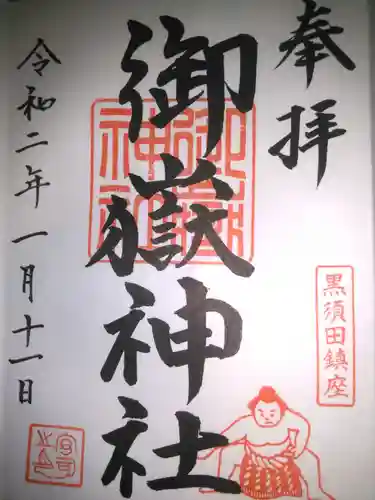 奉拝
黒須田鎮座
御嶽神社
御嶽神社
令和二年一月十一日
宮司之印